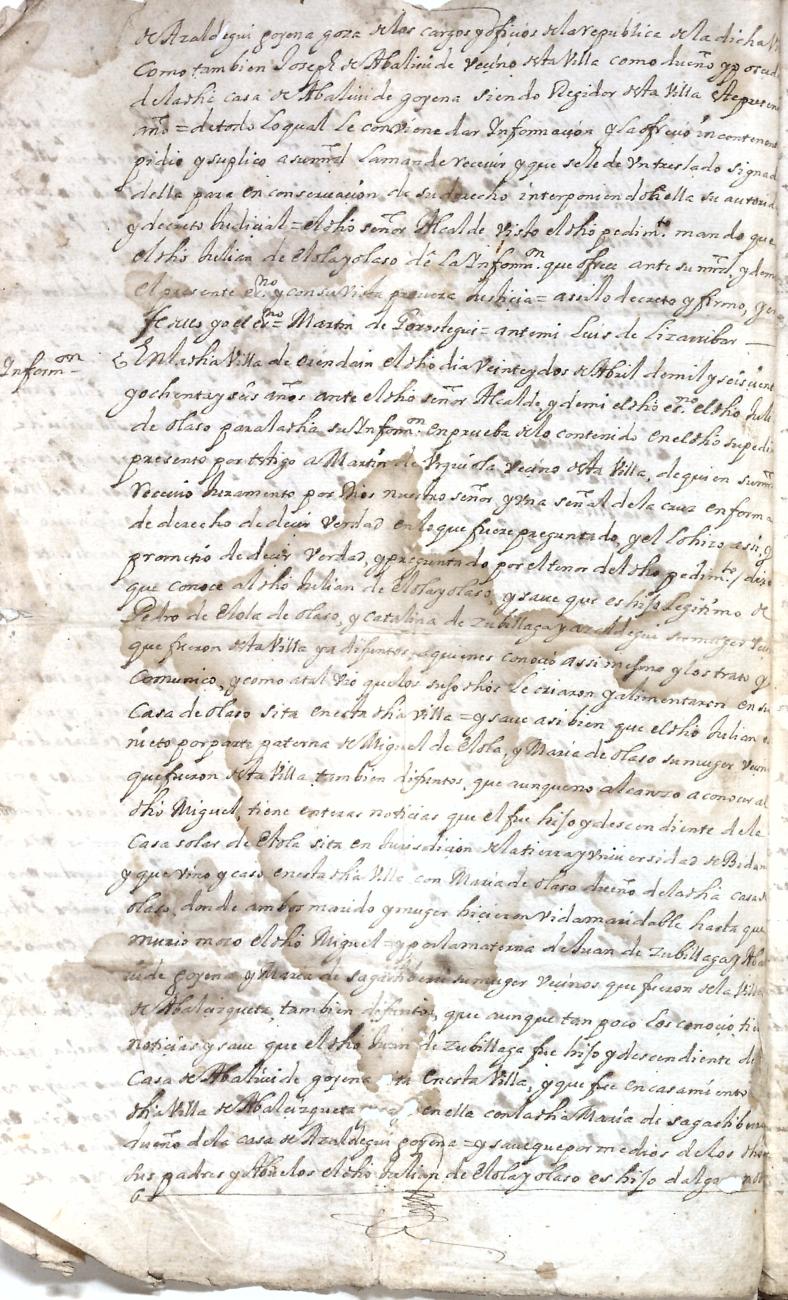 de Azaldegui goyena goza de los cargos y oficios de la republica de la dicha
Como tambien Joseph de Abaliui de Vecino desta Villa como dueño y
de la dha casa de Abaliui de goyena siendo Regidor desta Villa
año = de todo lo qual le conviene dar Informacion y la ofrecio
pidio y suplico a su mrd la mande recevir y que se le de un treslado signad
della para en conservacion de su derecho interponiendo en ella su autorid
y decreto Judicial = el dho señor Alcalde visto el dho pedimto mando que
el dho Julian de Elola y olaso dé la Informon que ofrece ante su mrd, y demi
el presente esno y con su Vista proveera Justicia = assi lo decreto y firmo, y en
fee dello yo el esno = Martin de Gorostegui = ante mi Luis de Lizarribar —
Informon
En la dha Villa de orendain el dho dia Veinte y dos de Abril de mil y seis cient
y ochenta y seis años ante el dho señor Alcalde, y de mi el dho esno el dho Juli
de olaso para la dha su Informon en prueba de lo contenido en el dho su pedi
presento por testigo a Martin de Urquiola vecino desta Villa, de quien su mrd
recevio Juramento por Dios nuestro señor, y una señal de la cruz en forma
de derecho de decir verdad en lo que fuere preguntado, y el lo hizo assi, y
prometio de decir verdad, y preguntado por el tenor del dho pedimto / dixo
que conoce al dho Julian de Elola y olaso, y save que es hijo legitimo de
Pedro de Elola de olaso, y Catalina de Zubillaga y azaldegui su muger
que fueron desta Villa ya difuntos, a quienes conocio assi mesmo y los trato y
Comunico, y como a tal vio que los suso dhos le criaron y alimentaron en su
Casa de olaso sita en esta dha villa = y save asi bien que el dho Julian es
nieto por parte paterna de Miguel de Elola, y Maria de olaso su muger vecin
que fueron desta Villa tambien difuntos, que aunque no alcanzo a conocer al
dho Miguel, tiene enteras noticias que el fue hijo y descendiente de la
Casa solar de Elola sita en Jurisdicion de la tierra y Universidad de Bidan
y que vino y caso en esta dha Villa con Maria de olaso dueño de la dha casa de
olaso, donde ambos marido y muger hicieron vida maridable hasta que
murio el dho Miguel = y por la materna de Juan de Zubillaga y Aba
de goyena y Maria de sagastiberri su muger vecinos que fueron de la Villa
de Abalcizqueta, tambien difuntos, que aunque tan poco los conocio tie
noticias y save que el dho Juan de Zubillaga fue hijo y descendiente de
Casa de Abaliui de goyena sita en esta Villa, y que fue en casamiento
dha Villa de Abalcizqueta en ella con la dha Maria de sagastiberri
dueño de la casa de Azaldegui goyena = y save que por medios de los dhos
sus padres y Abuelos el dho Julian de Elola y olaso es hijo dalgo